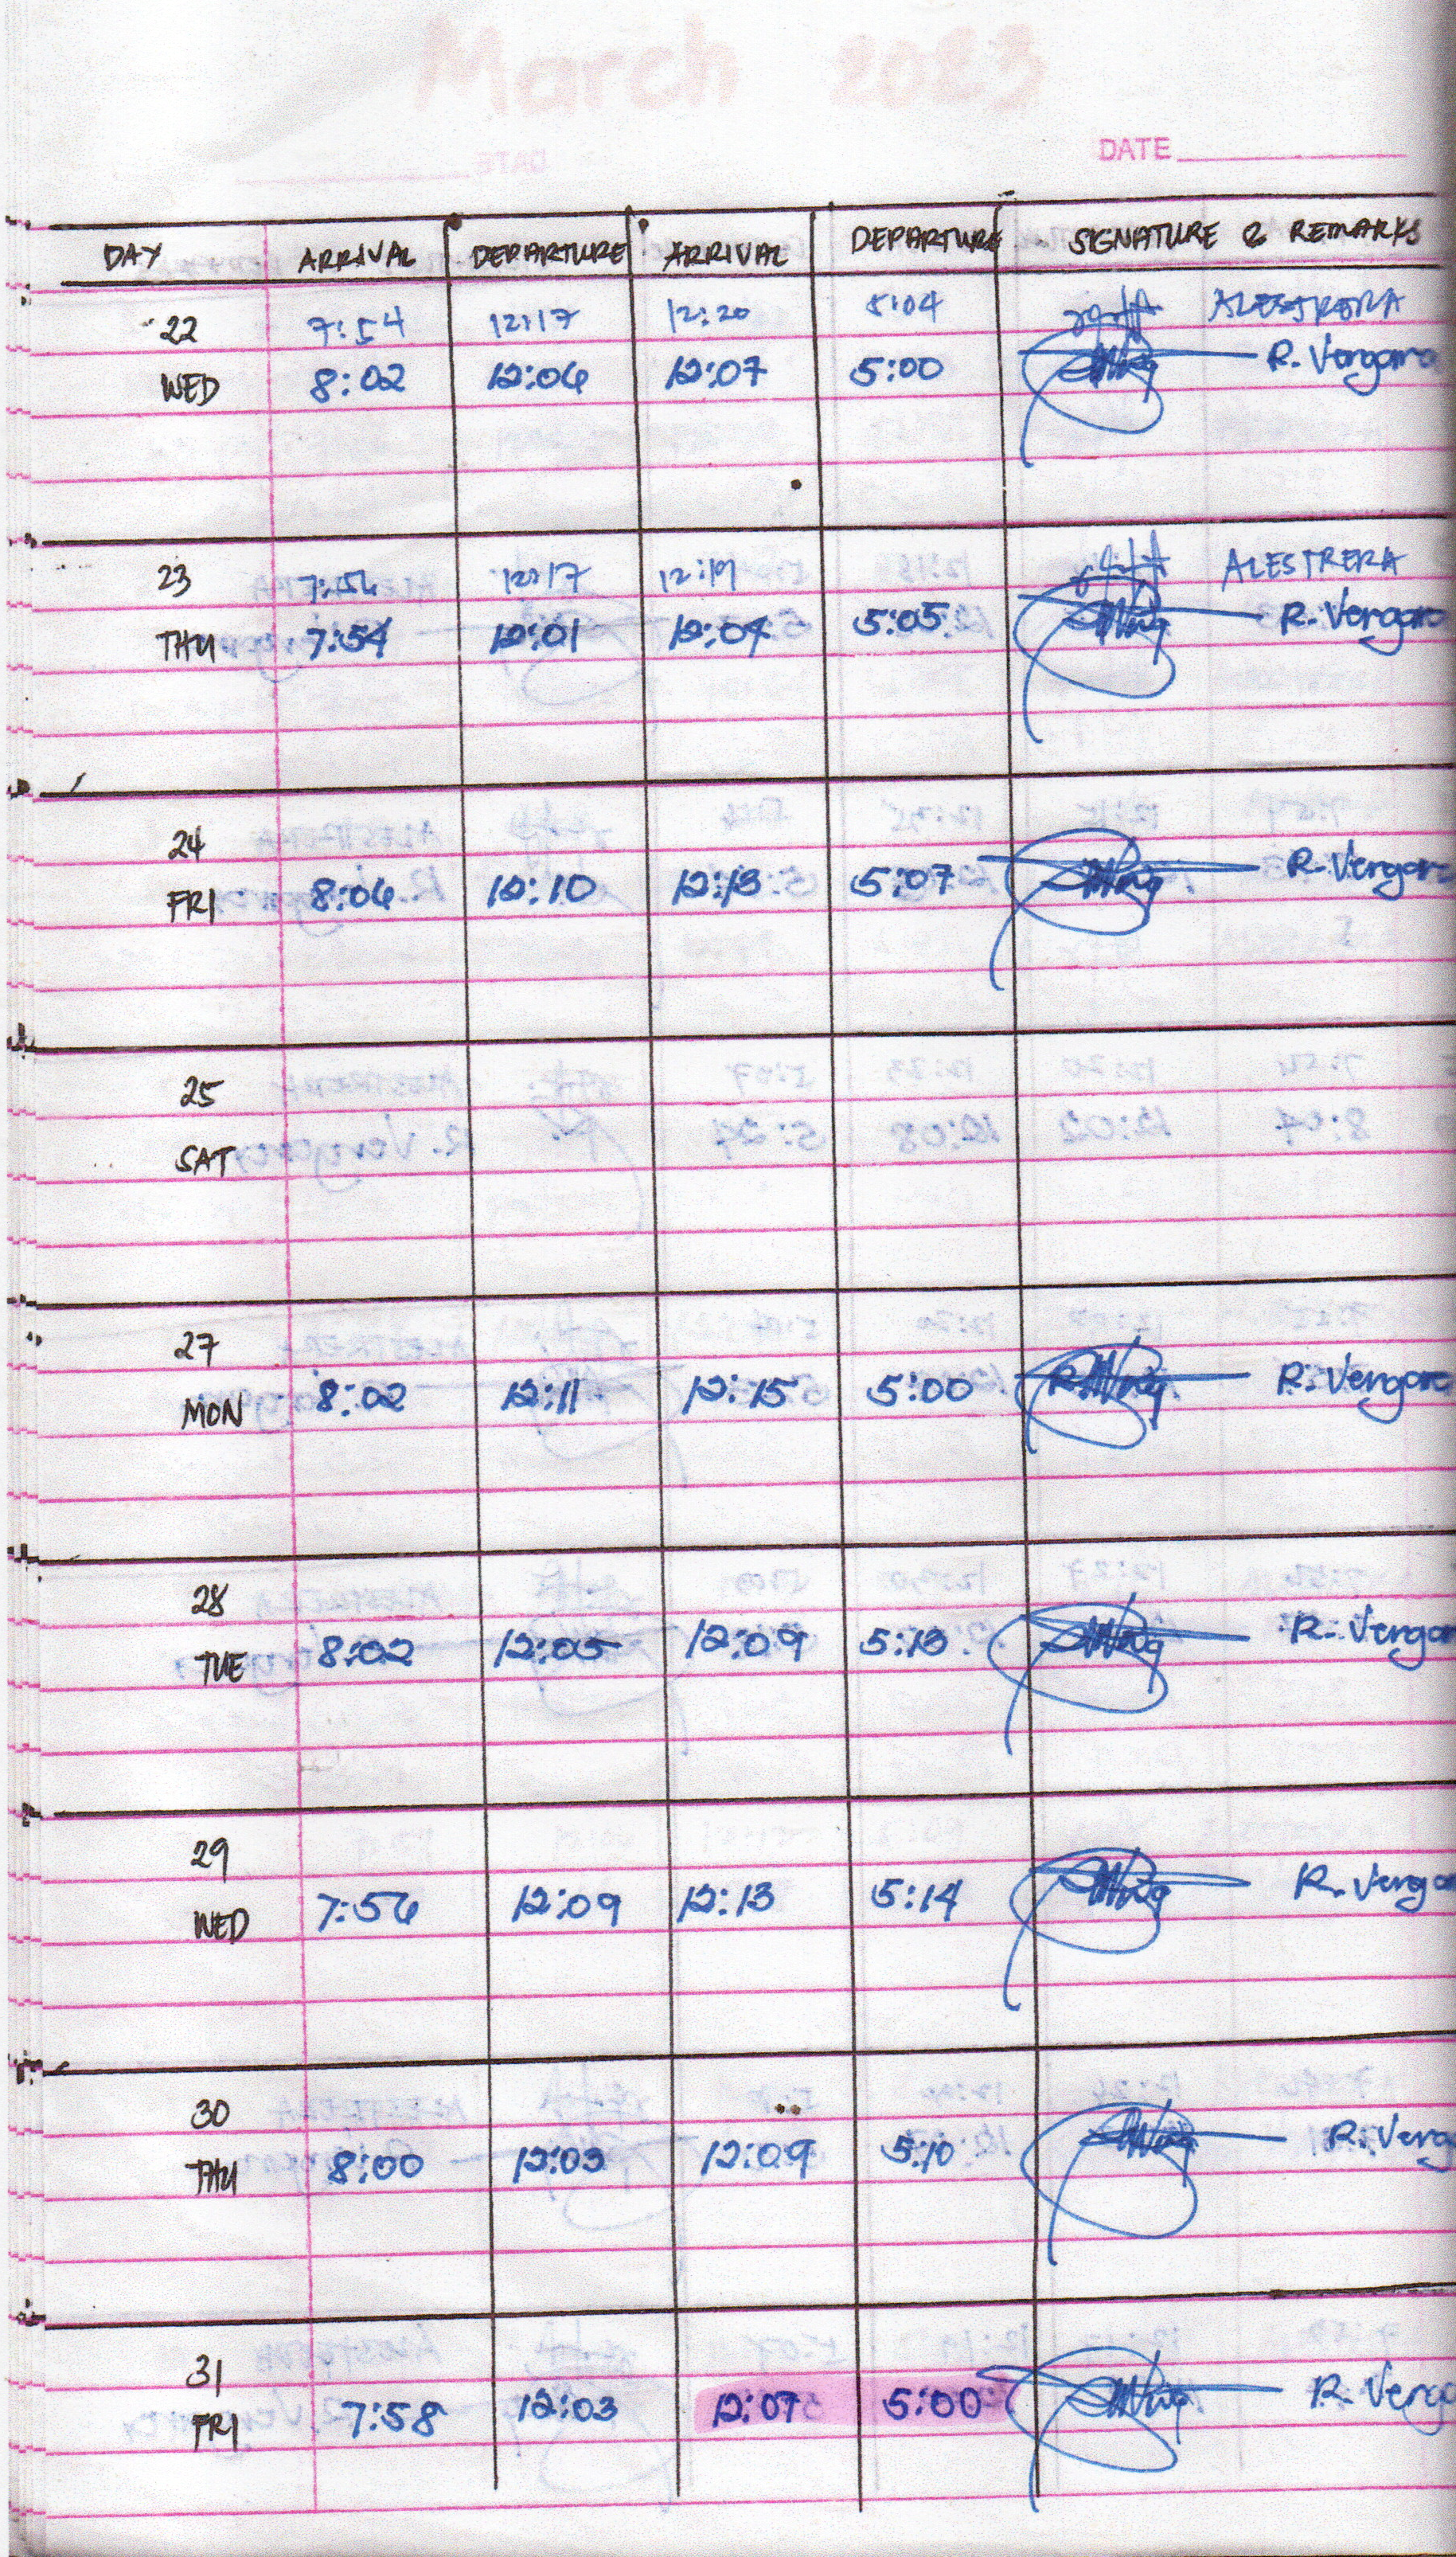 March 2023
DATE
DAY ARRIVAL DEPARTURE ARRIVAL DEPARTURE SIGNATURE & REMARKS
22 7:54 12:17 12:20 5:04 ALESTRERA
WED 8:02 12:06 12:07 5:00 R. Vergara
23 12:17 12:19 ALESTRERA
THU 7:54 12:01 12:04 5:05 R. Vergara
24
FRI 8:06 12:10 12:13 5:07 R. Vergara
25
SAT
27
MON 8:02 12:11 12:15 5:00 R. Vergara
28
TUE 8:02 12:05 12:09 5:13 R. Vergar
29
WED 7:56 12:09 12:13 5:14 R. Verga
30
THU 8:00 12:03 12:09 5:10 R. Verg
31
FRI 7:58 12:03 12:07 5:00 R. Verg